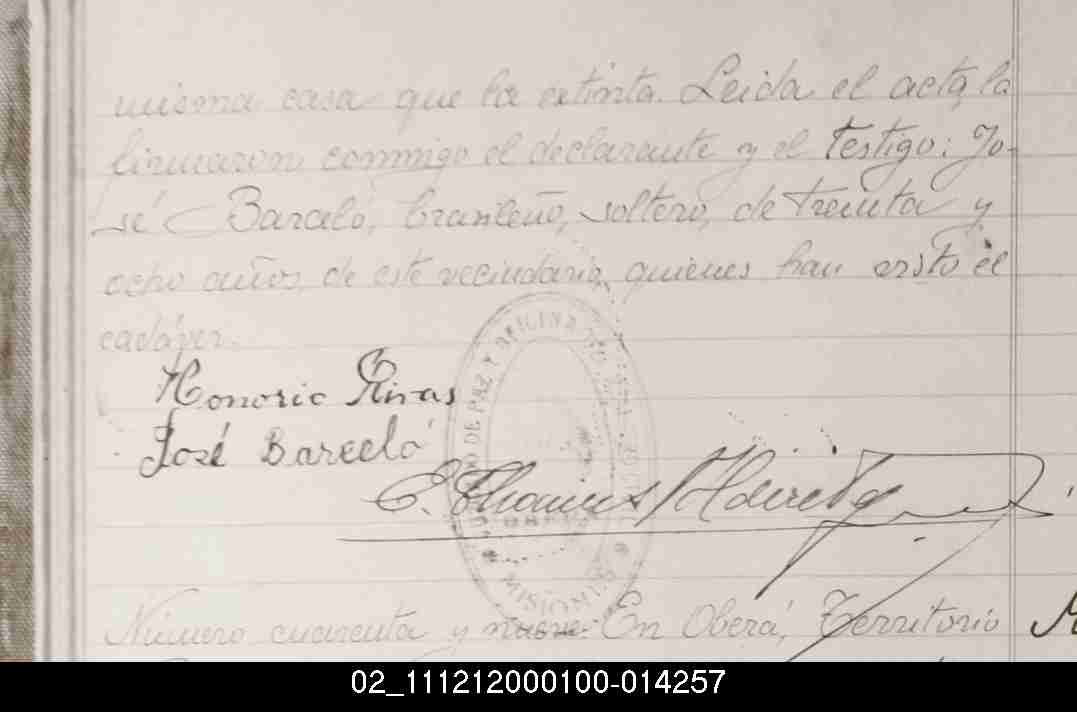 misma casa que la extinta. Leida el acta, la
firmaron conmigo el declarante y el testigo: Jo-
sé Barceló, brasileño, soltero, de treinta y
ocho años, de este vecindario, quienes han visto el
cadáver.
Honorio Rivas
José Barceló
DE PAZ Y OFICINA
MISIONES
Número cuarenta y nueve: En Oberá, Territorio
02_111212000100-014257